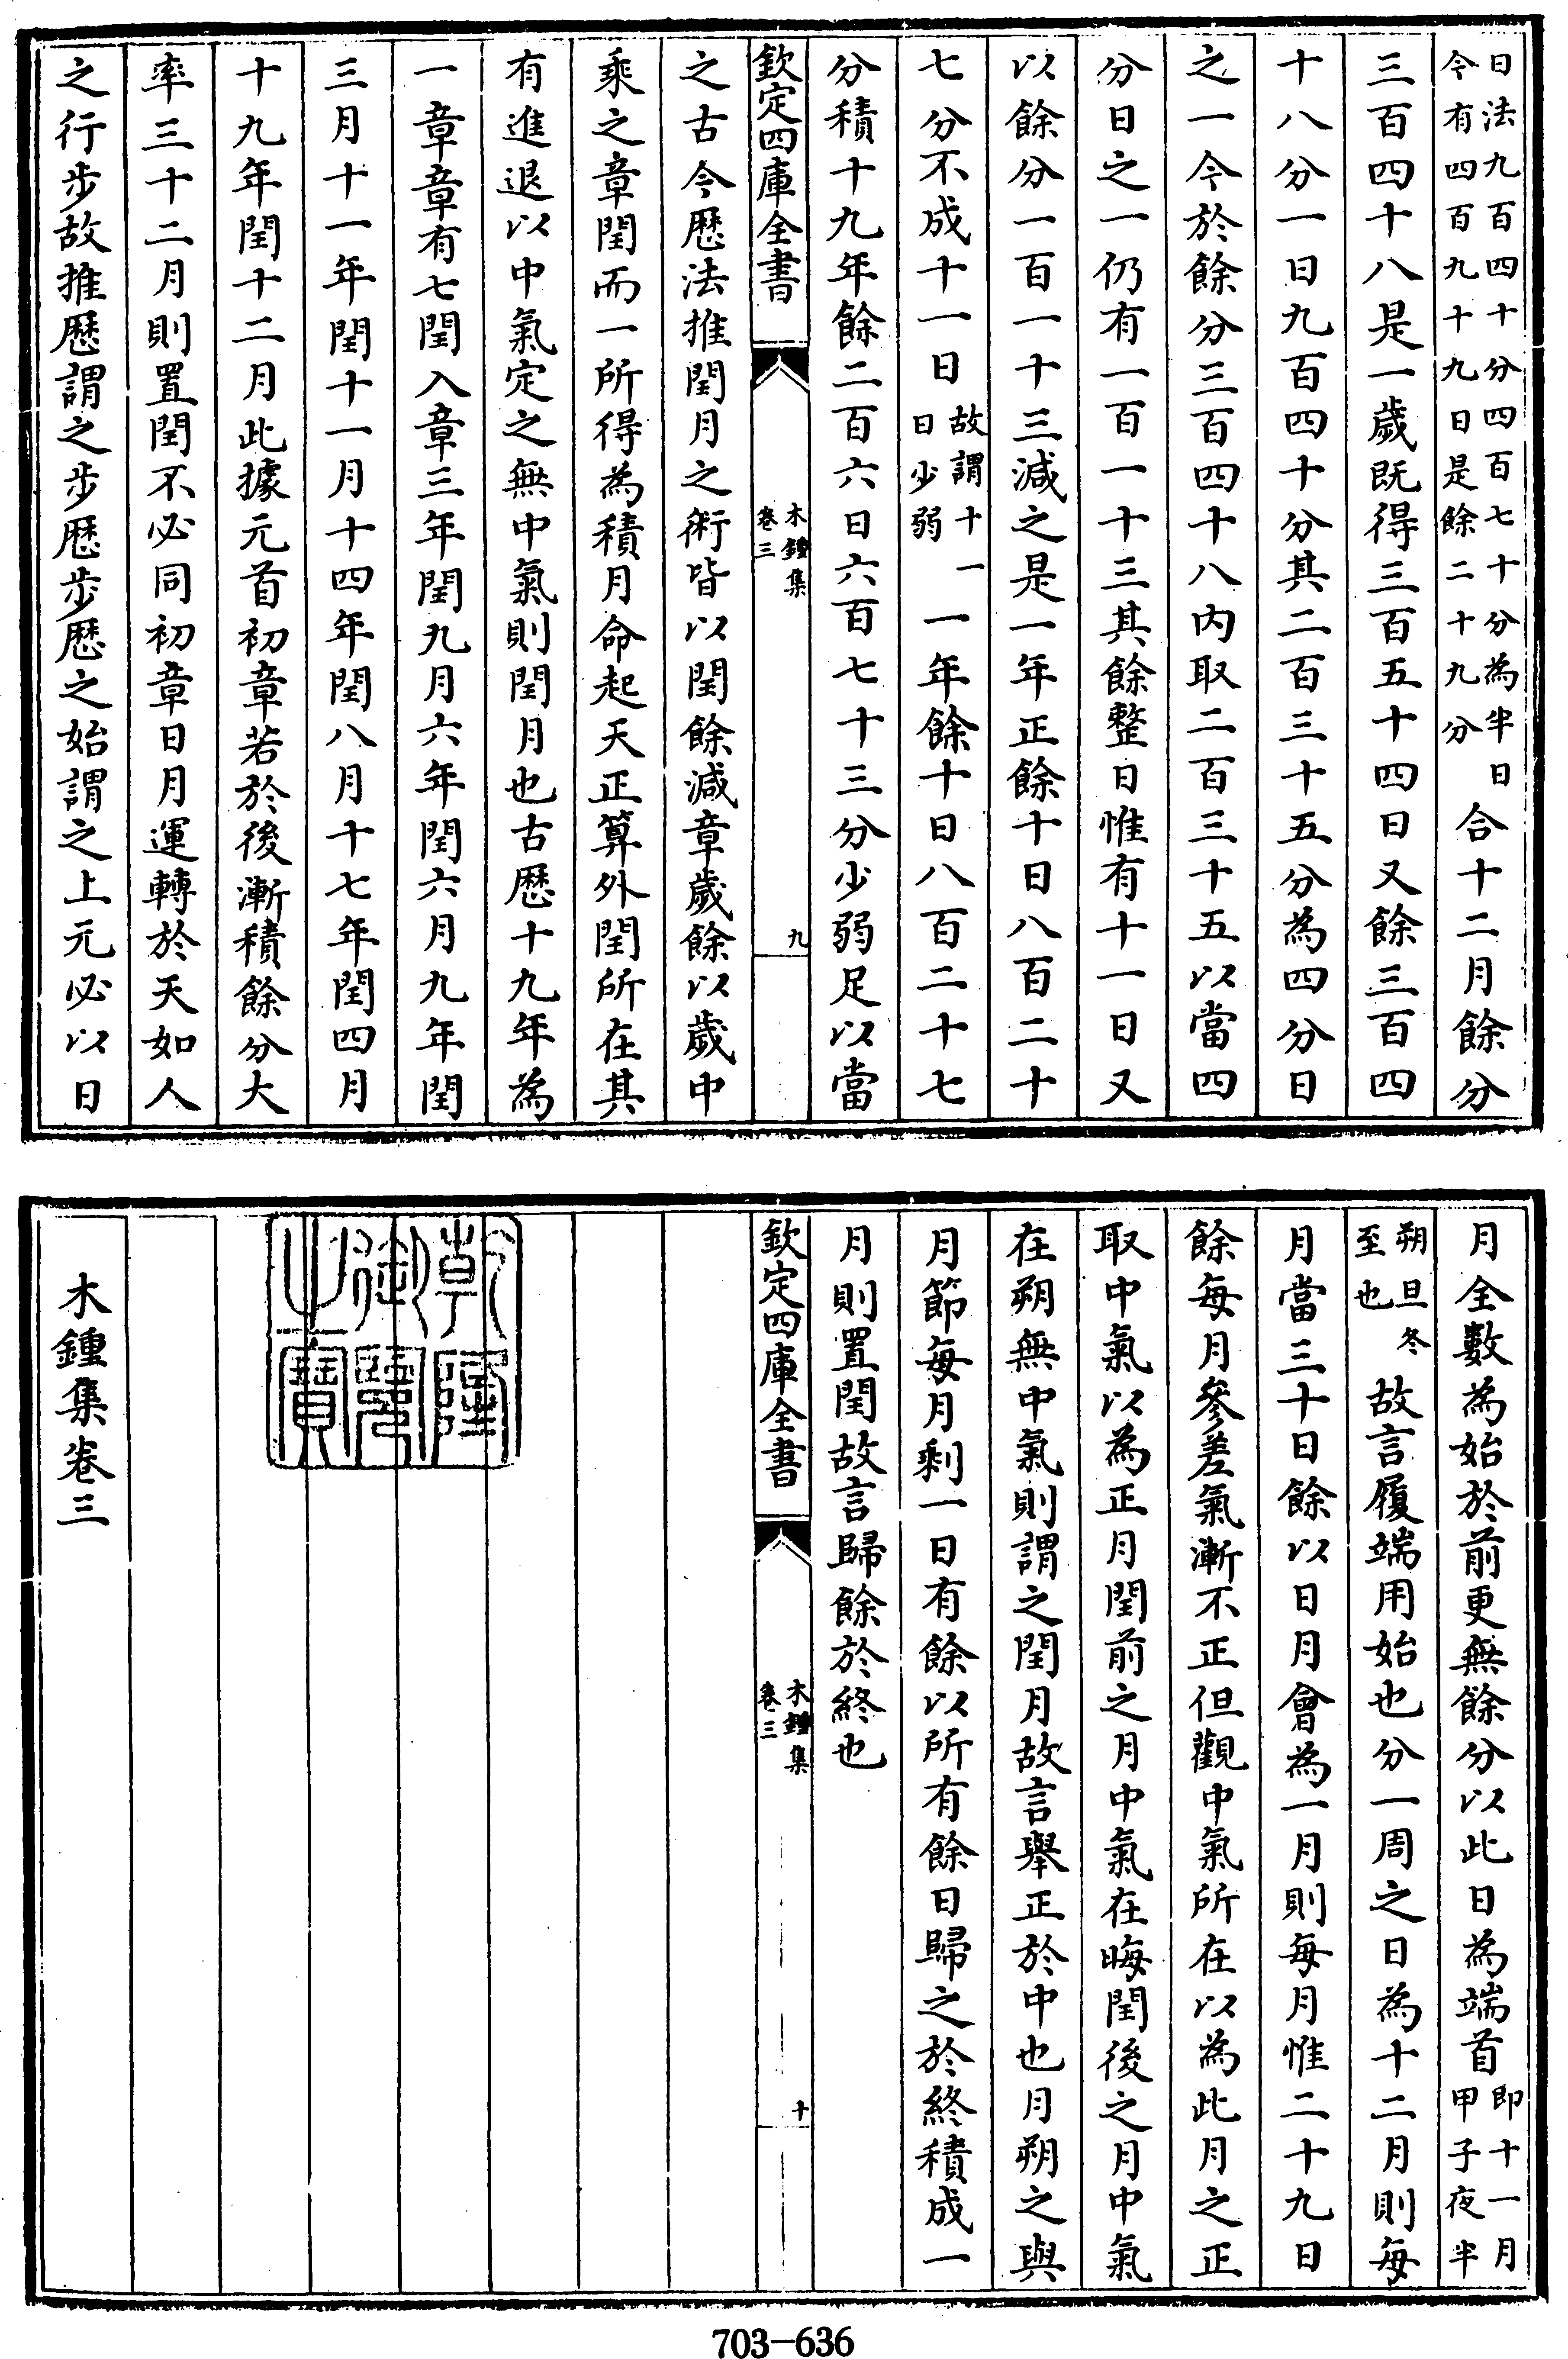 日法九百四十分四百七十分為半日
今有四百九十九日是餘二十九分
合十二月餘分
三百四十八是一歲既得三百五十四日又餘三百四
十八分一日九百四十分其二百三十五分為四分日
之一今於餘分三百四十八内取二百三十五以當四
分日之一仍有一百一十三其餘整日惟有十一日又
以餘分一百一十三減之是一年正餘十日八百二十
七分不成十一日
故謂十一
日少弱
一年餘十日八百二十七
分積十九年餘二百六日六百七十三分少弱足以當
欽定四庫全書
木鍾集
卷三
九
之古今歴法推閏月之術皆以閏餘減章歲餘以歲中
乘之章閏而一所得為積月命起天正算外閏所在其
有進退以中氣定之無中氣則閏月也古歴十九年為
一章章有七閏入章三年閏九月六年閏六月九年閏
三月十一年閏十一月十四年閏八月十七年閏四月
十九年閏十二月此據元首初章若於後漸積餘分大
率三十二月則置閏不必同初章日月運轉於天如人
之行步故推歴謂之步歴步歴之始謂之上元必以日
月全數為始於前更無餘分以此日為端首
即十一月
甲子夜半
朔旦冬
至也
故言履端用始也分一周之日為十二月則每
月當三十日餘以日月會為一月則每月惟二十九日
餘每月參差氣漸不正但觀中氣所在以為此月之正
取中氣以為正月閏前之月中氣在晦閏後之月中氣
在朔無中氣則謂之閏月故言舉正於中也月朔之與
月節每月剩一日有餘以所有餘日歸之於終積成一
月則置閏故言歸餘於終也
欽定四庫全書
木鍾集
卷三
十
乾隆御覽之寶
木鍾集卷三
703-636